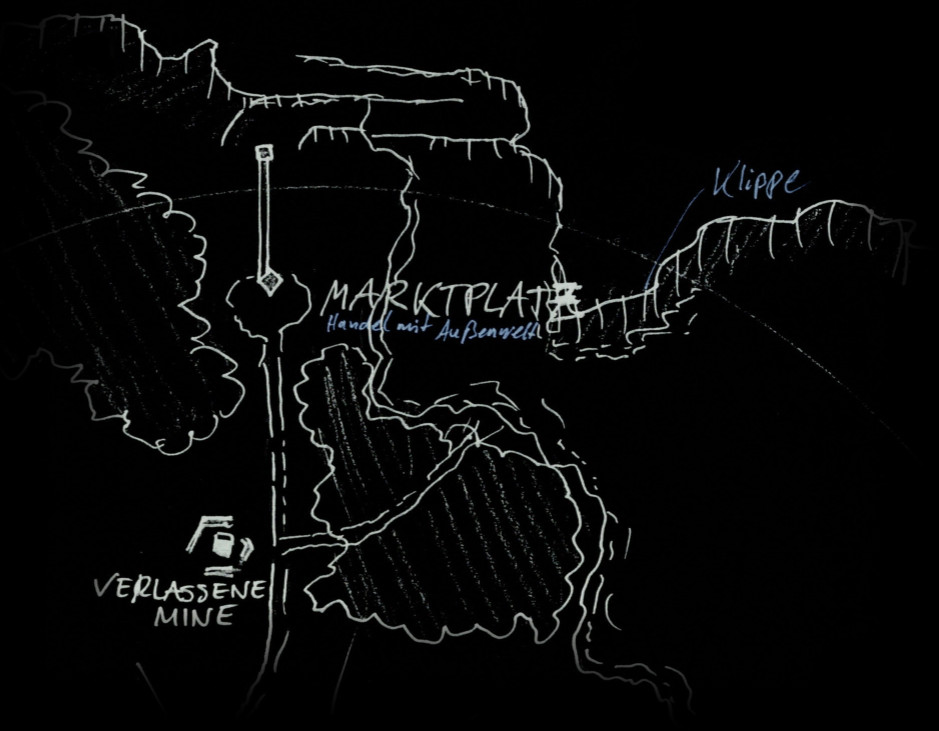 Klippe
MARKTPLATZ
Handel mit Außenwelt
VERLASSENE
MINE